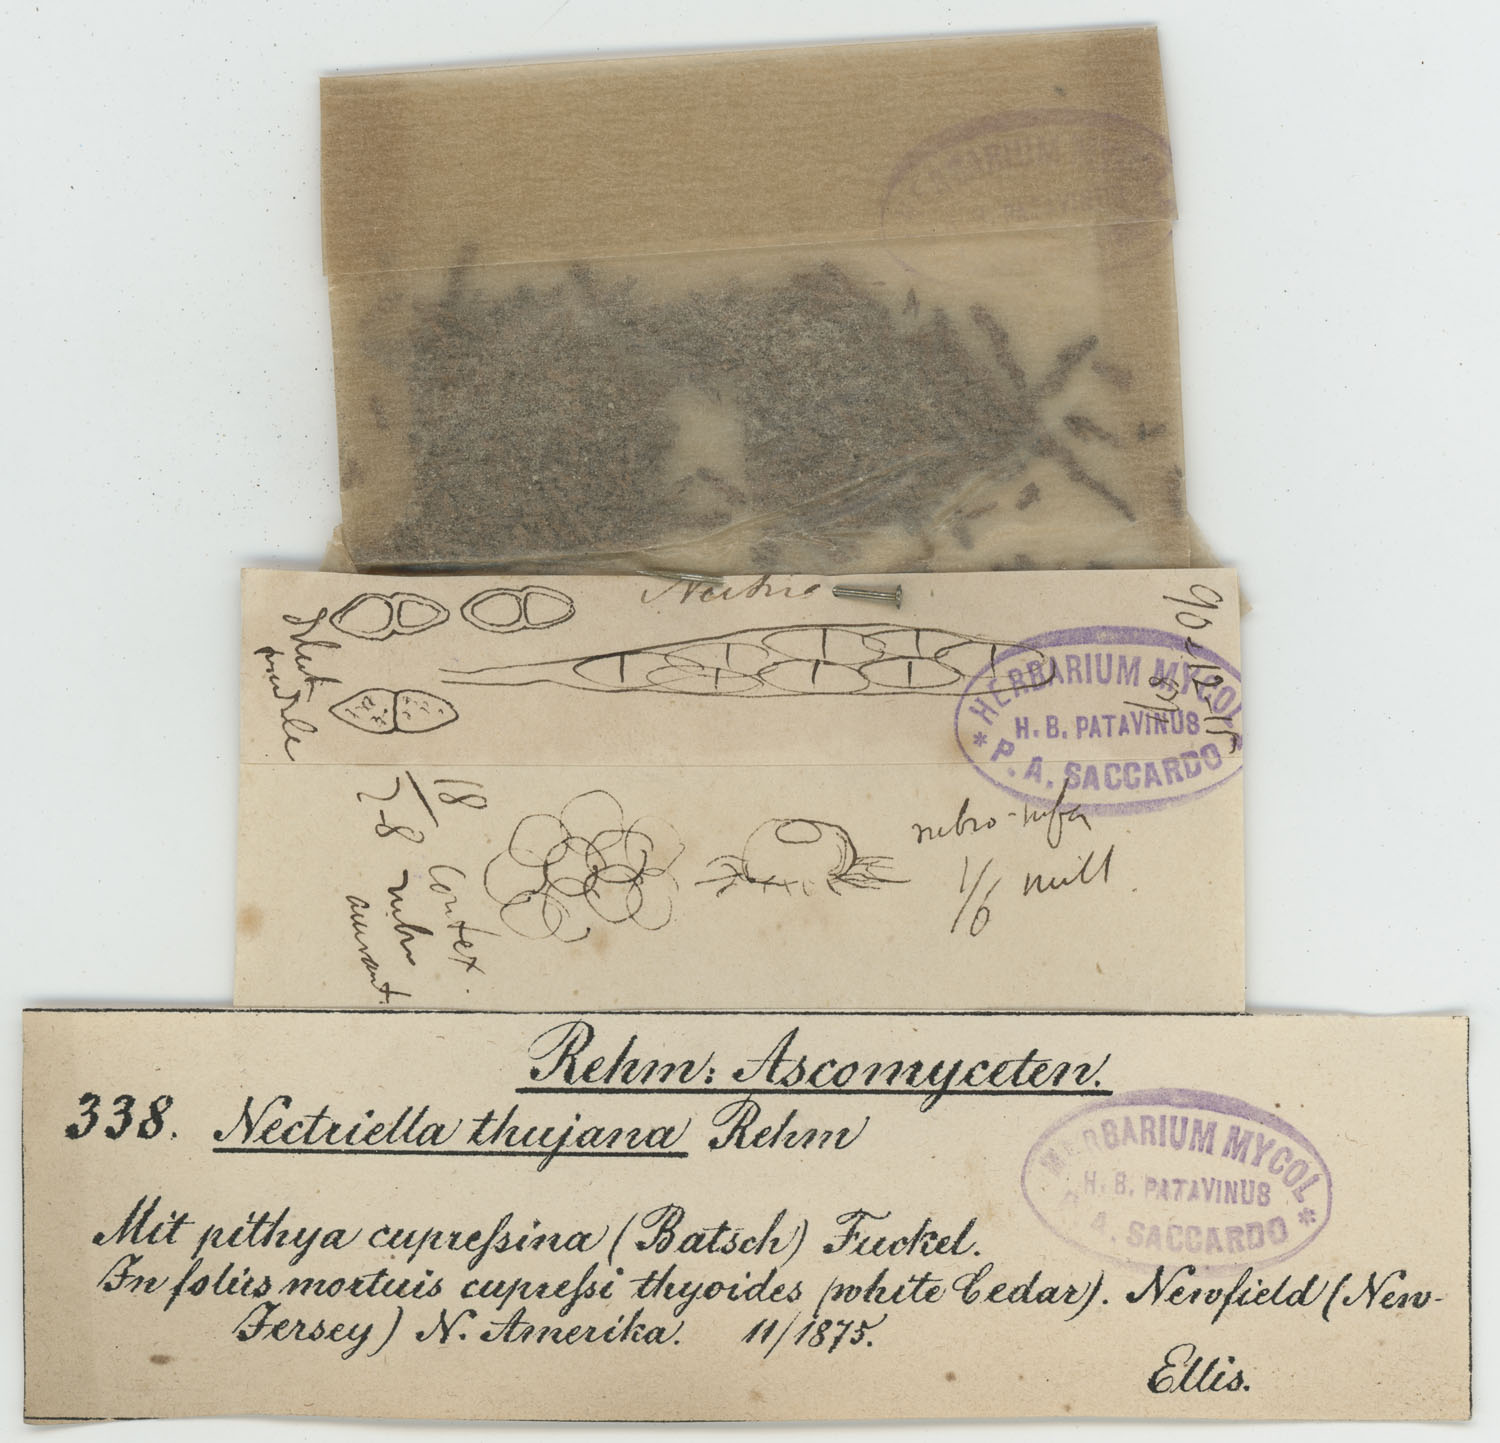 HERBARIUM MYCOL
H. B. PATAVINUS
* P. A. SACCARDO
90-12-15
18
7-8
cortex.
rubro
aurant.
rubro-rufa
1/6 mill.
Rehm: Ascomyceten.
338. Nectriella thujana Rehm
HERBARIUM MYCOL
H. B. PATAVINUS
P. A. SACCARDO *
Mit pithya cupreſsina (Batsch) Fuckel.
In foliis mortuis cupreſsi thyoides (white Cedar). Newfield (New-
Jersey) N. Amerika. 11/1875.
Ellis.